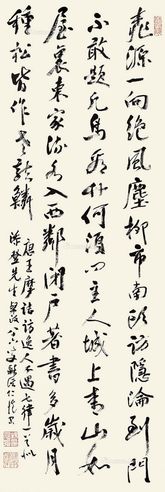 桃源一向絕風塵柳市南頭訪隱淪到門
不敢題凡鳥看竹何須問主人城上青山如
屋裏東家流水入西鄰閉戶著書多歲月
種松皆作老龍鱗
唐王摩詰訪逸人不遇七律一首似
先生